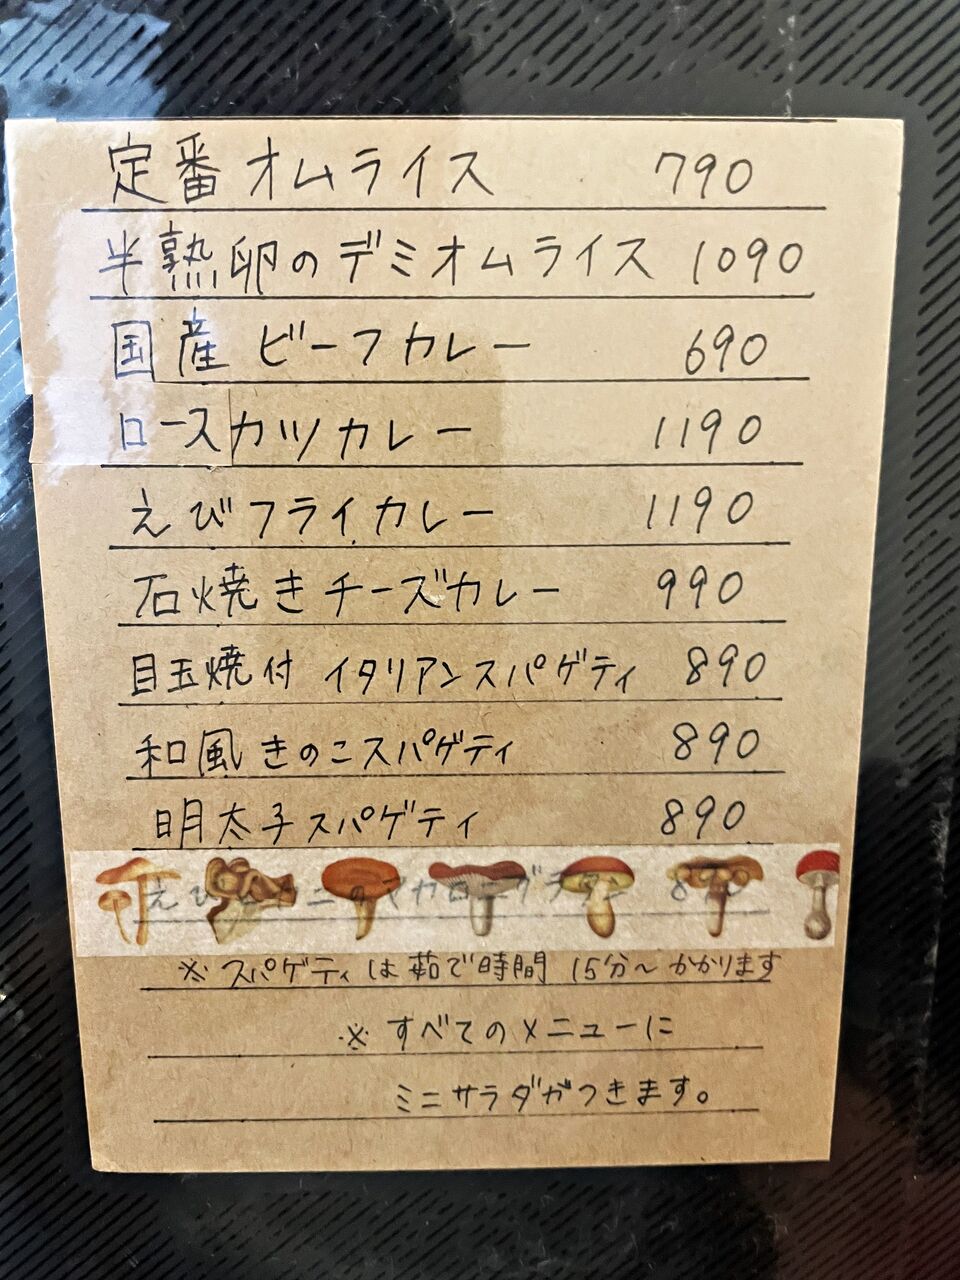 定番オムライス 790
半熟卵のデミオムライス 1090
国産ビーフカレー 690
ロースカツカレー 1190
えびフライカレー 1190
石焼きチーズカレー 990
目玉焼付 イタリアンスパゲティ 890
和風きのこスパゲティ 890
明太子スパゲティ 890
※スパゲティは茹で時間 15分～かかります
※すべてのメニューに
ミニサラダがつきます。